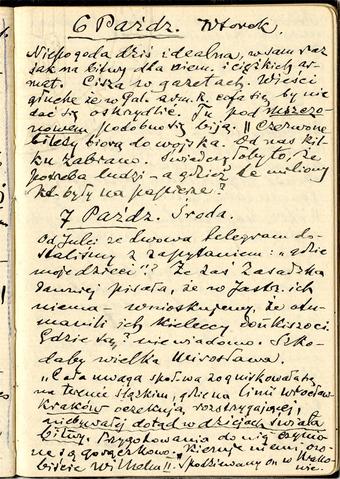 6 Paźdz. Wtorek.
Niepogoda dziś idealna, w sam raz
jak na bitwy dla niem. i ciężkich ar-
mat. Cisza w gazetach. Wieści
głuche że w Gal. arm. R. cofa się by nie
dać się oskrydlić. Tu pod Mszczo-
nowem podobno się biją. || Czerwone
bilety biorą do wojska. Od nas kil-
ku zabrano. Świadczyłoby to, że
potrzeba ludzi - a gdzież te miliony
były na papierze?
7 Paźdz. Środa.
Od Julci ze Lwowa telegram do-
staliśmy z zapytaniem: "gdzie
moje dzieci"? Że zaś Zasadzka
dawniej pisała, że w Jastrz. ich
niema - wnioskujemy, że otu-
manili ich kieleccy donkiszoci.
Gdzie są? niewiadomo. Szko-
daby wielka Mirosława.
"Cała uwaga społ-wa zogniskowała się
na terenie śląskim, gdzie na linii Wrocław
Kraków oczekują rozstrzygającej,
niebywałej dotąd w dziejach świata
bitwy. Przygotowania do niej czynio-
ne są gorączkowo. Kieruje niemi oso-
biście Wilhelm II. Spodziewany on w